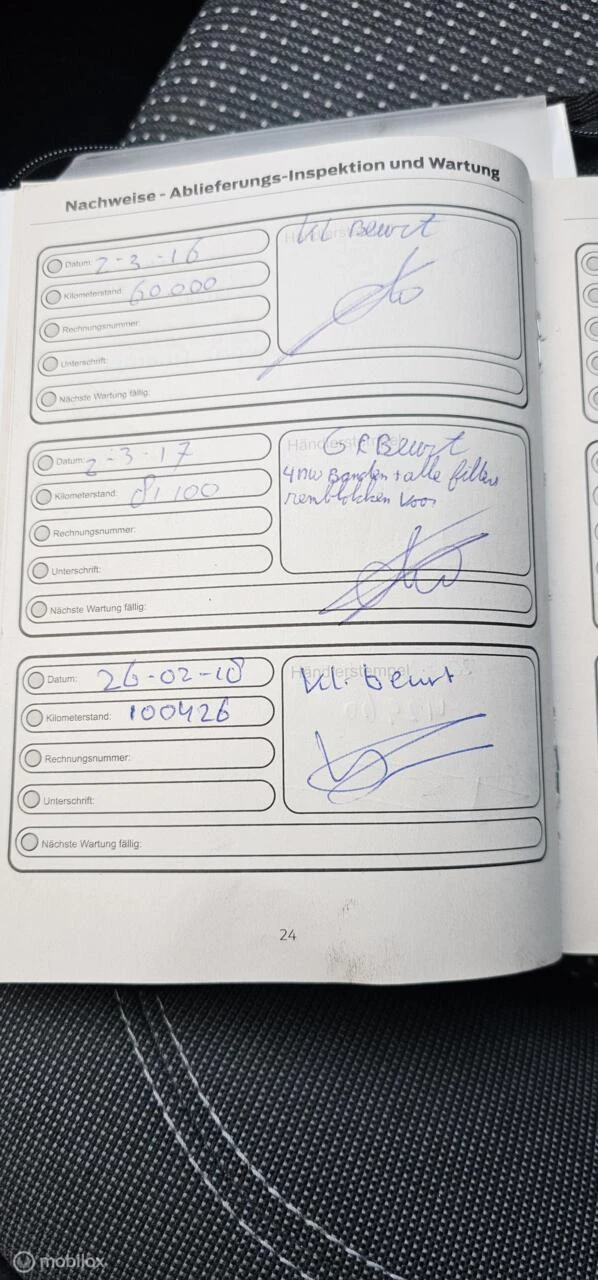 Nachweise - Ablieferungs-Inspektion und Wartung
Datum: 2-3-16
Kilometerstand: 60.000
Rechnungsnummer:
Unterschrift:
Nächste Wartung fällig:
Kl Beurt
Datum: 2-3-17
Kilometerstand: 81100
Rechnungsnummer:
Unterschrift:
Nächste Wartung fällig:
Händlerstempel
GR Beurt
4 nw Banden + alle filters
remblokken voor
Datum: 26-02-18
Kilometerstand: 100426
Rechnungsnummer:
Unterschrift:
Nächste Wartung fällig:
Händlerstempel
Kl. beurt
24
mobilox